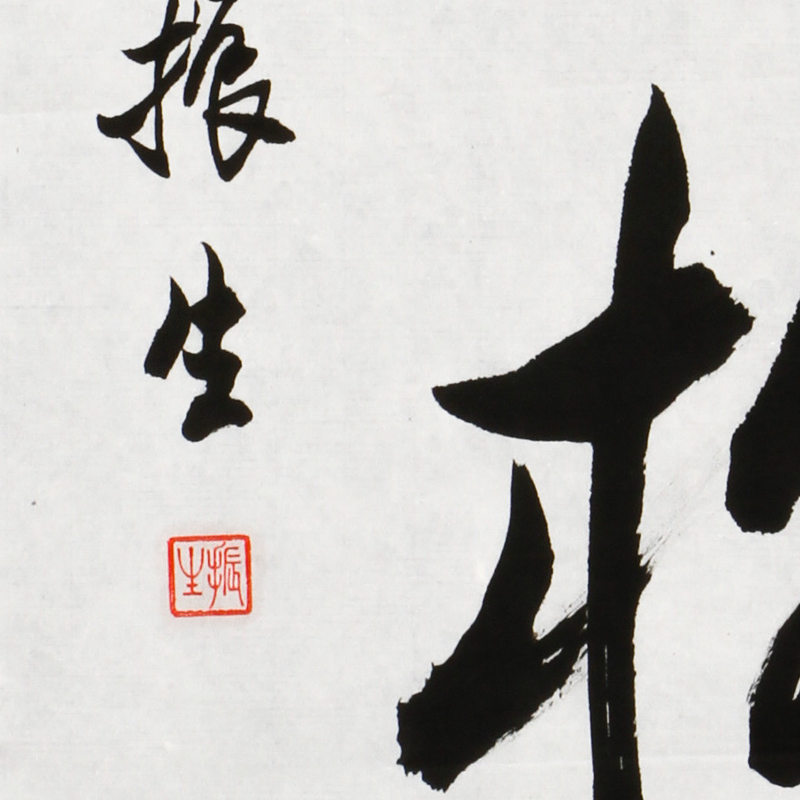 振生
振生